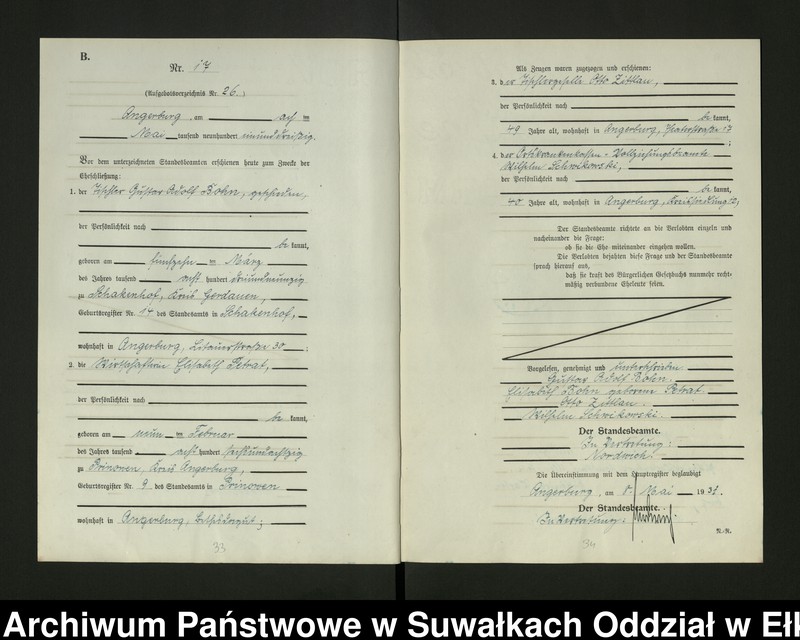 B.
Nr. 17
(Aufgebotsverzeichnis Nr. 26.)
Angerburg, am acht ten
Mai tausend neunhundert einunddreißig.
Vor dem unterzeichneten Standesbeamten erschienen heute zum Zweck der
Eheschließung:
1. der Tischler Gustav Adolf Bohn, geschieden,
der Persönlichkeit nach
be kannt,
geboren am fünfzehn ten März
des Jahres tausend acht hundert dreiundneunzig
zu Schakenhof, Kreis Gerdauen,
Geburtsregister Nr. 14 des Standesamts in Schakenhof,
wohnhaft in Angerburg, 30;
2. die Wirtschafterin Elisabeth Petrat,
der Persönlichkeit nach
be kannt,
geboren am neun ten Februar
des Jahres tausend acht hundert sechsundachtzig
zu Prinowen, Kreis Angerburg,
Geburtsregister Nr. 9 des Standesamts in Prinowen
wohnhaft in Angerburg,
33
Als Zeugen waren zugezogen und erschienen:
3. der Tischlergeselle Otto Zittlau,
der Persönlichkeit nach
be kannt,
49 Jahre alt, wohnhaft in Angerburg, Theaterstraße 17
;
4. der Ortskrankenkassen-Vollziehungsbeamte
Wilhelm Schwikowski,
der Persönlichkeit nach
be kannt,
40 Jahre alt, wohnhaft in Angerburg, Kreissiedlung 12,
Der Standesbeamte richtete an die Verlobten einzeln und
nacheinander die Frage:
ob sie die Ehe miteinander eingehen wollen.
Die Verlobten bejahten diese Frage und der Standesbeamte
sprach hierauf aus,
daß sie kraft des Bürgerlichen Gesetzbuchs nunmehr recht-
mäßig verbundene Eheleute seien.
Vorgelesen, genehmigt und unterschrieben
Gustav Adolf Bohn.
Elisabeth Bohn geborene Petrat.
Otto Zittlau.
Wilhelm Schwikowski.
Der Standesbeamte.
In Vertretung:
Nordwich.
Die Übereinstimmung mit dem Hauptregister beglaubigt
Angerburg, am 8. Mai 1931.
Der Standesbeamte.
In Vertretung:
R.-R.
34
Archiwum Państwowe w Suwałkach Oddział w Eł